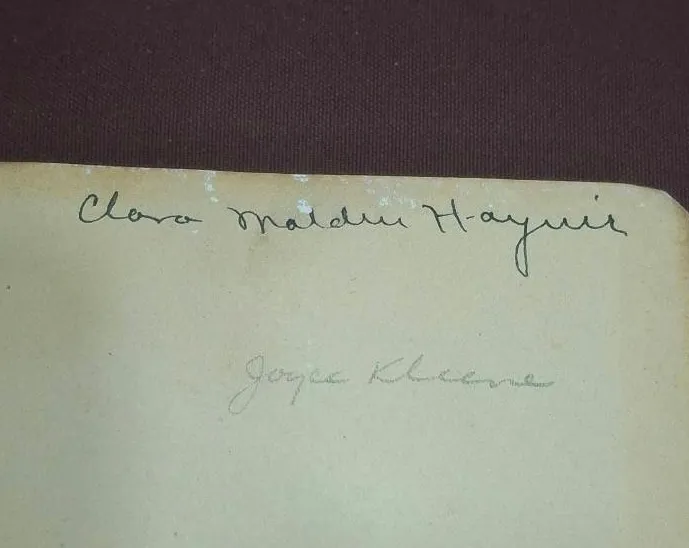 Clara Malden Haynie
Joyce Kleene